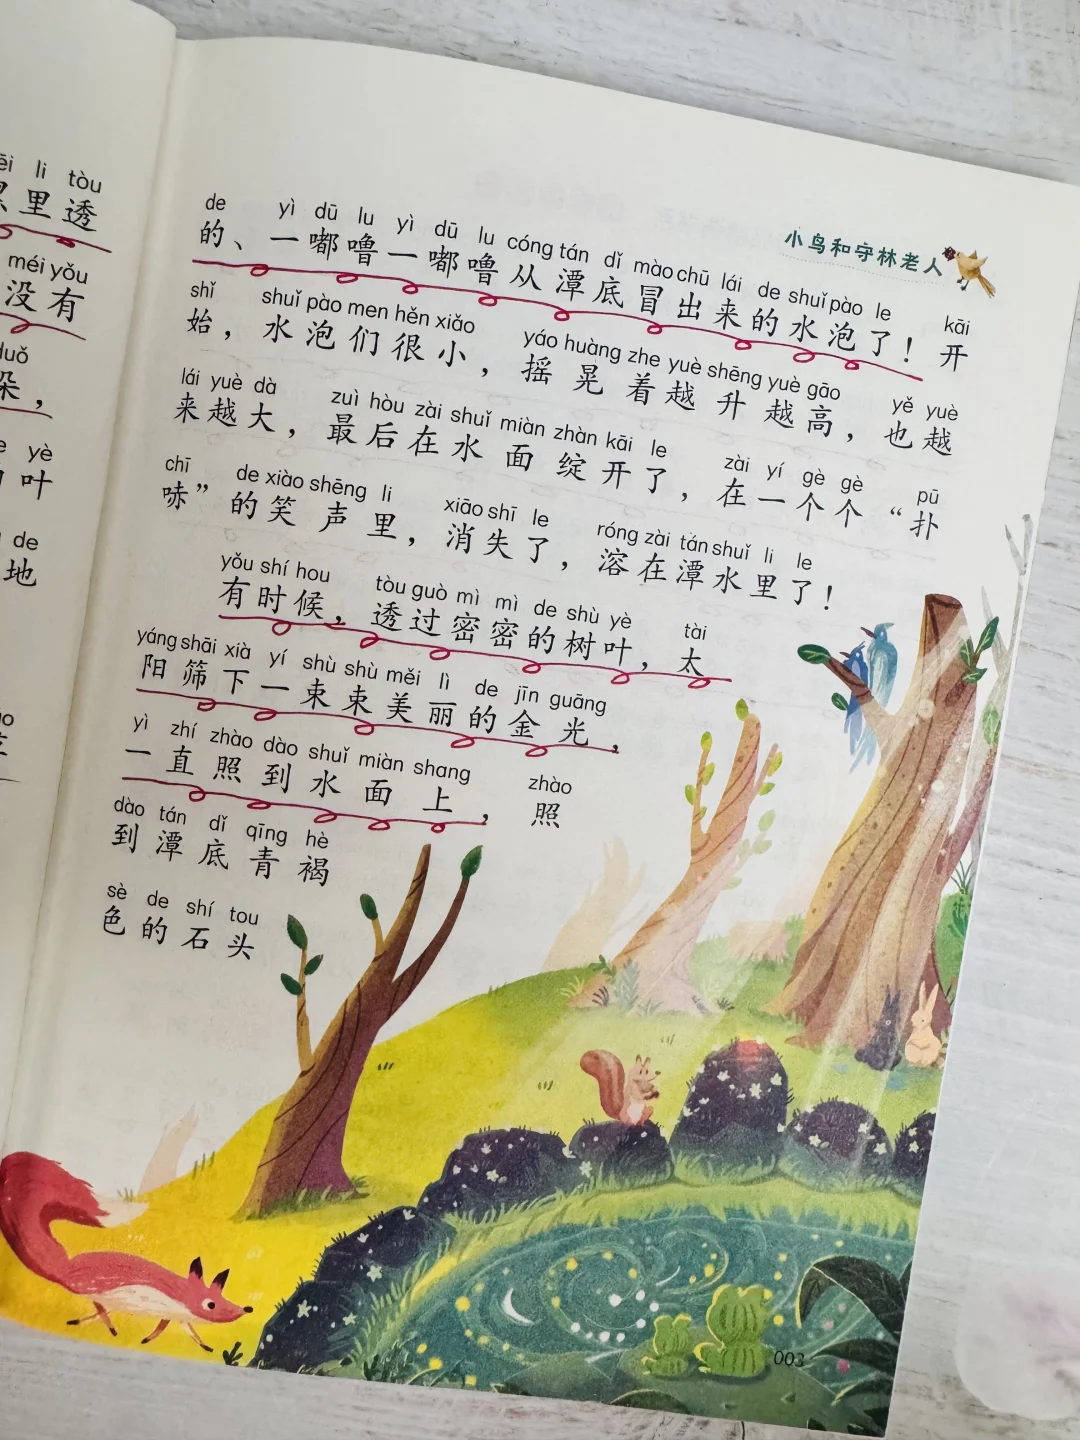 ēi li tòu
里透
méi yǒu
没有
duǒ
朵，
yè
叶
de
地
小鸟和守林老人
de yì dū lu yì dū lu cóng tán dǐ mào chū lái de shuǐ pào le kāi
的、一嘟噜一嘟噜从潭底冒出来的水泡了！开
shǐ shuǐ pào men hěn xiǎo yáo huàng zhe yuè shēng yuè gāo yě yuè
始，水泡们很小，摇晃着越升越高，也越
lái yuè dà zuì hòu zài shuǐ miàn zhàn kāi le zài yí gè gè pū
来越大，最后在水面绽开了，在一个个“扑
chī de xiào shēng li xiāo shī le róng zài tán shuǐ li le
哧”的笑声里，消失了，溶在潭水里了！
yǒu shí hou tòu guò mì mì de shù yè tài
有时候，透过密密的树叶，太
yáng shāi xià yí shù shù měi lì de jīn guāng
阳筛下一束束美丽的金光，
yì zhí zhào dào shuǐ miàn shang zhào
一直照到水面上，照
dào tán dǐ qīng hè
到潭底青褐
sè de shí tou
色的石头
003